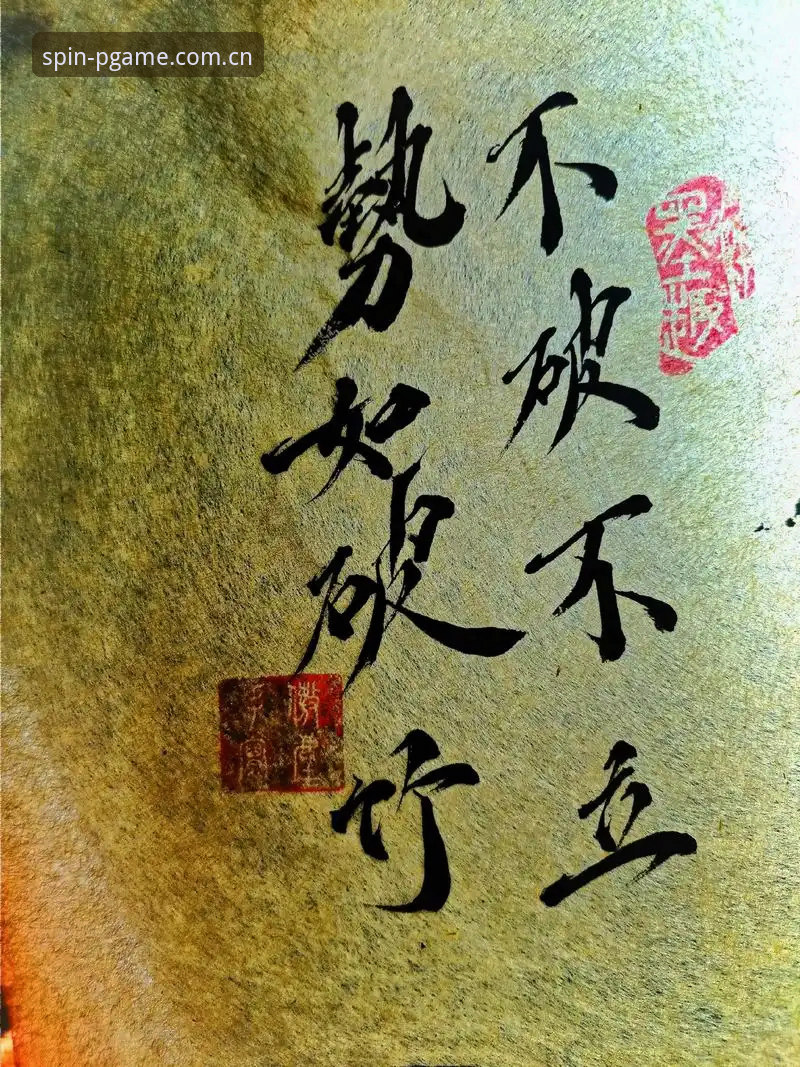 spin-pgame.com.cn
不破不立
勢如破竹